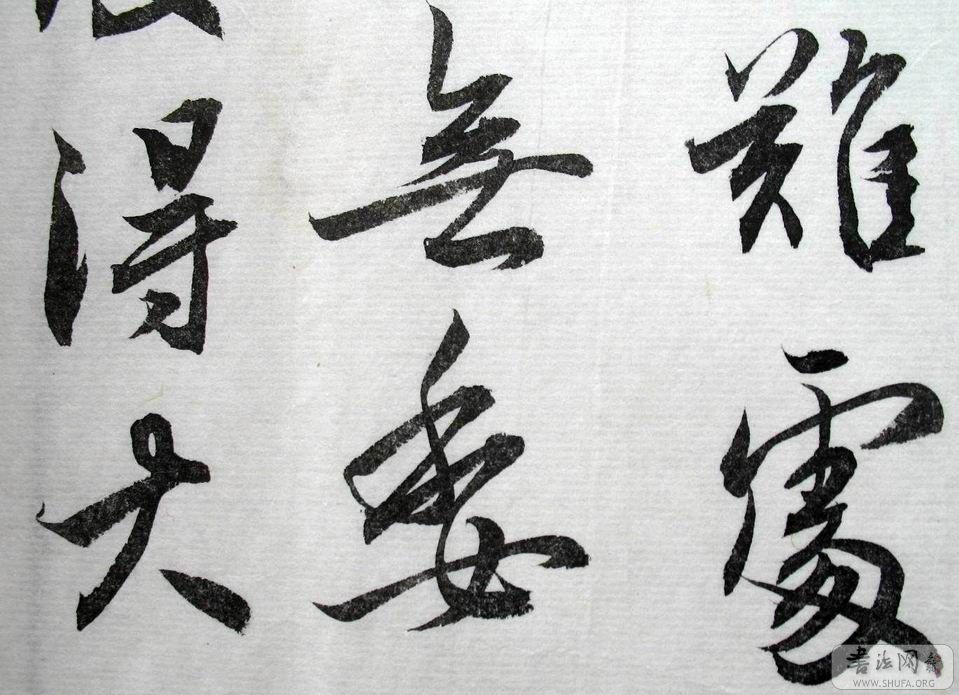 難處
無委
得大
書法网
WWW.SHUFA.ORG